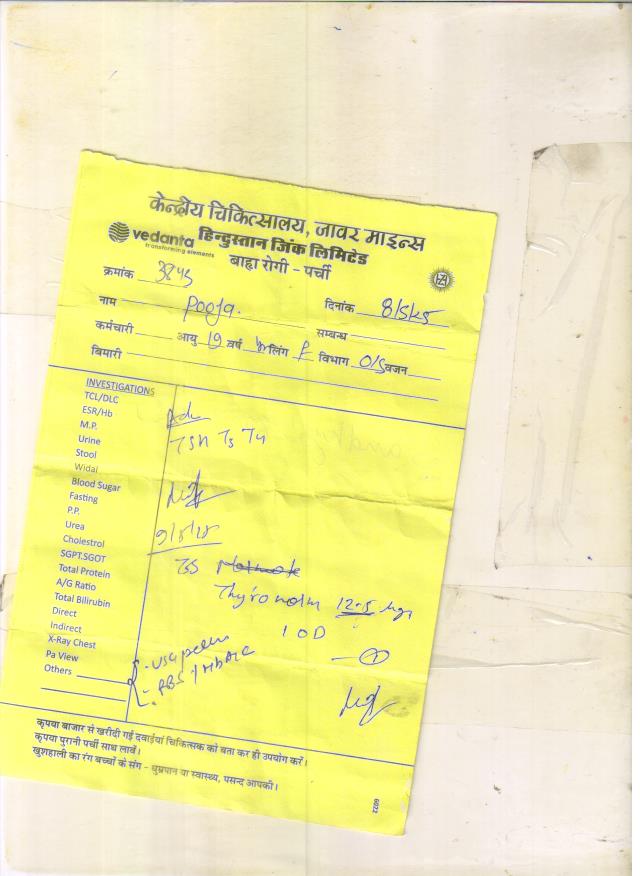 केन्द्रीय चिकित्सालय, जावर माइन्स
vedanta हिन्दुस्तान जिंक लिमिटेड
transforming elements
बाह्य रोगी - पर्ची
क्रमांक 3845
नाम Pooja. दिनांक 8/5/25
कर्मचारी आयु 19 वर्ष लिंग F विभाग O/S वजन
सम्बन्ध
बिमारी
INVESTIGATIONS
TCL/DLC
ESR/Hb
M.P.
Urine
Stool
Widal
Blood Sugar
Fasting
P.P.
Urea
Cholestrol
SGPT.SGOT
Total Protein
A/G Ratio
Total Bilirubin
Direct
Indirect
X-Ray Chest
Pa View
Others
Adv
TSH T3 T4
9/5/25
Thyronorm 12.5 mgs
1 OD
- 1
- USG pelvis
- RBS / HbA1c
कृपया बाजार से खरीदी गई दवाईयां चिकित्सक को बता कर ही उपयोग करें।
कृपया पुरानी पर्ची साथ लावें।
खुशहाली का रंग बच्चों के संग - धुम्रपान या स्वास्थ्य, पसन्द आपकी।
6022